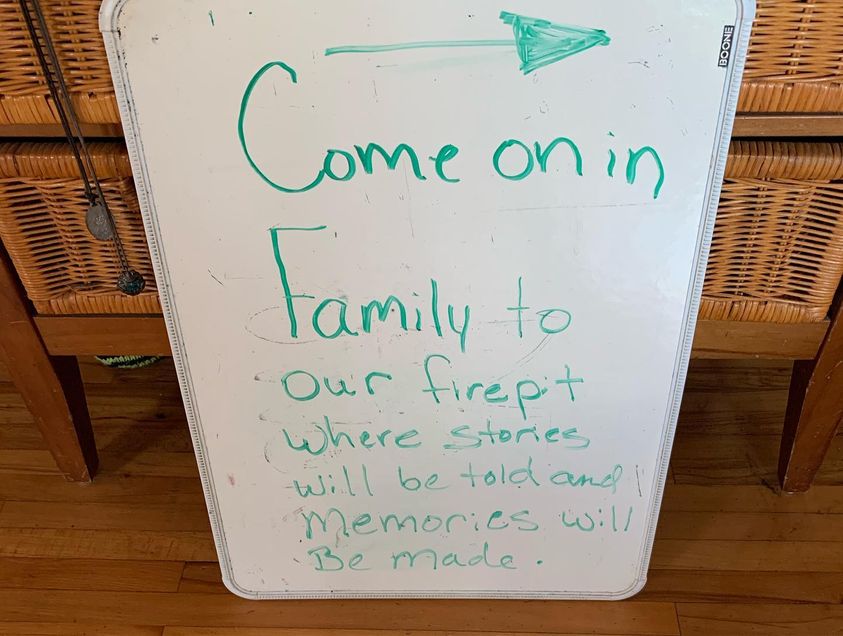 BOONE
Come on in
Family to
our firepit
where stories
will be told and
Memories will
Be made.